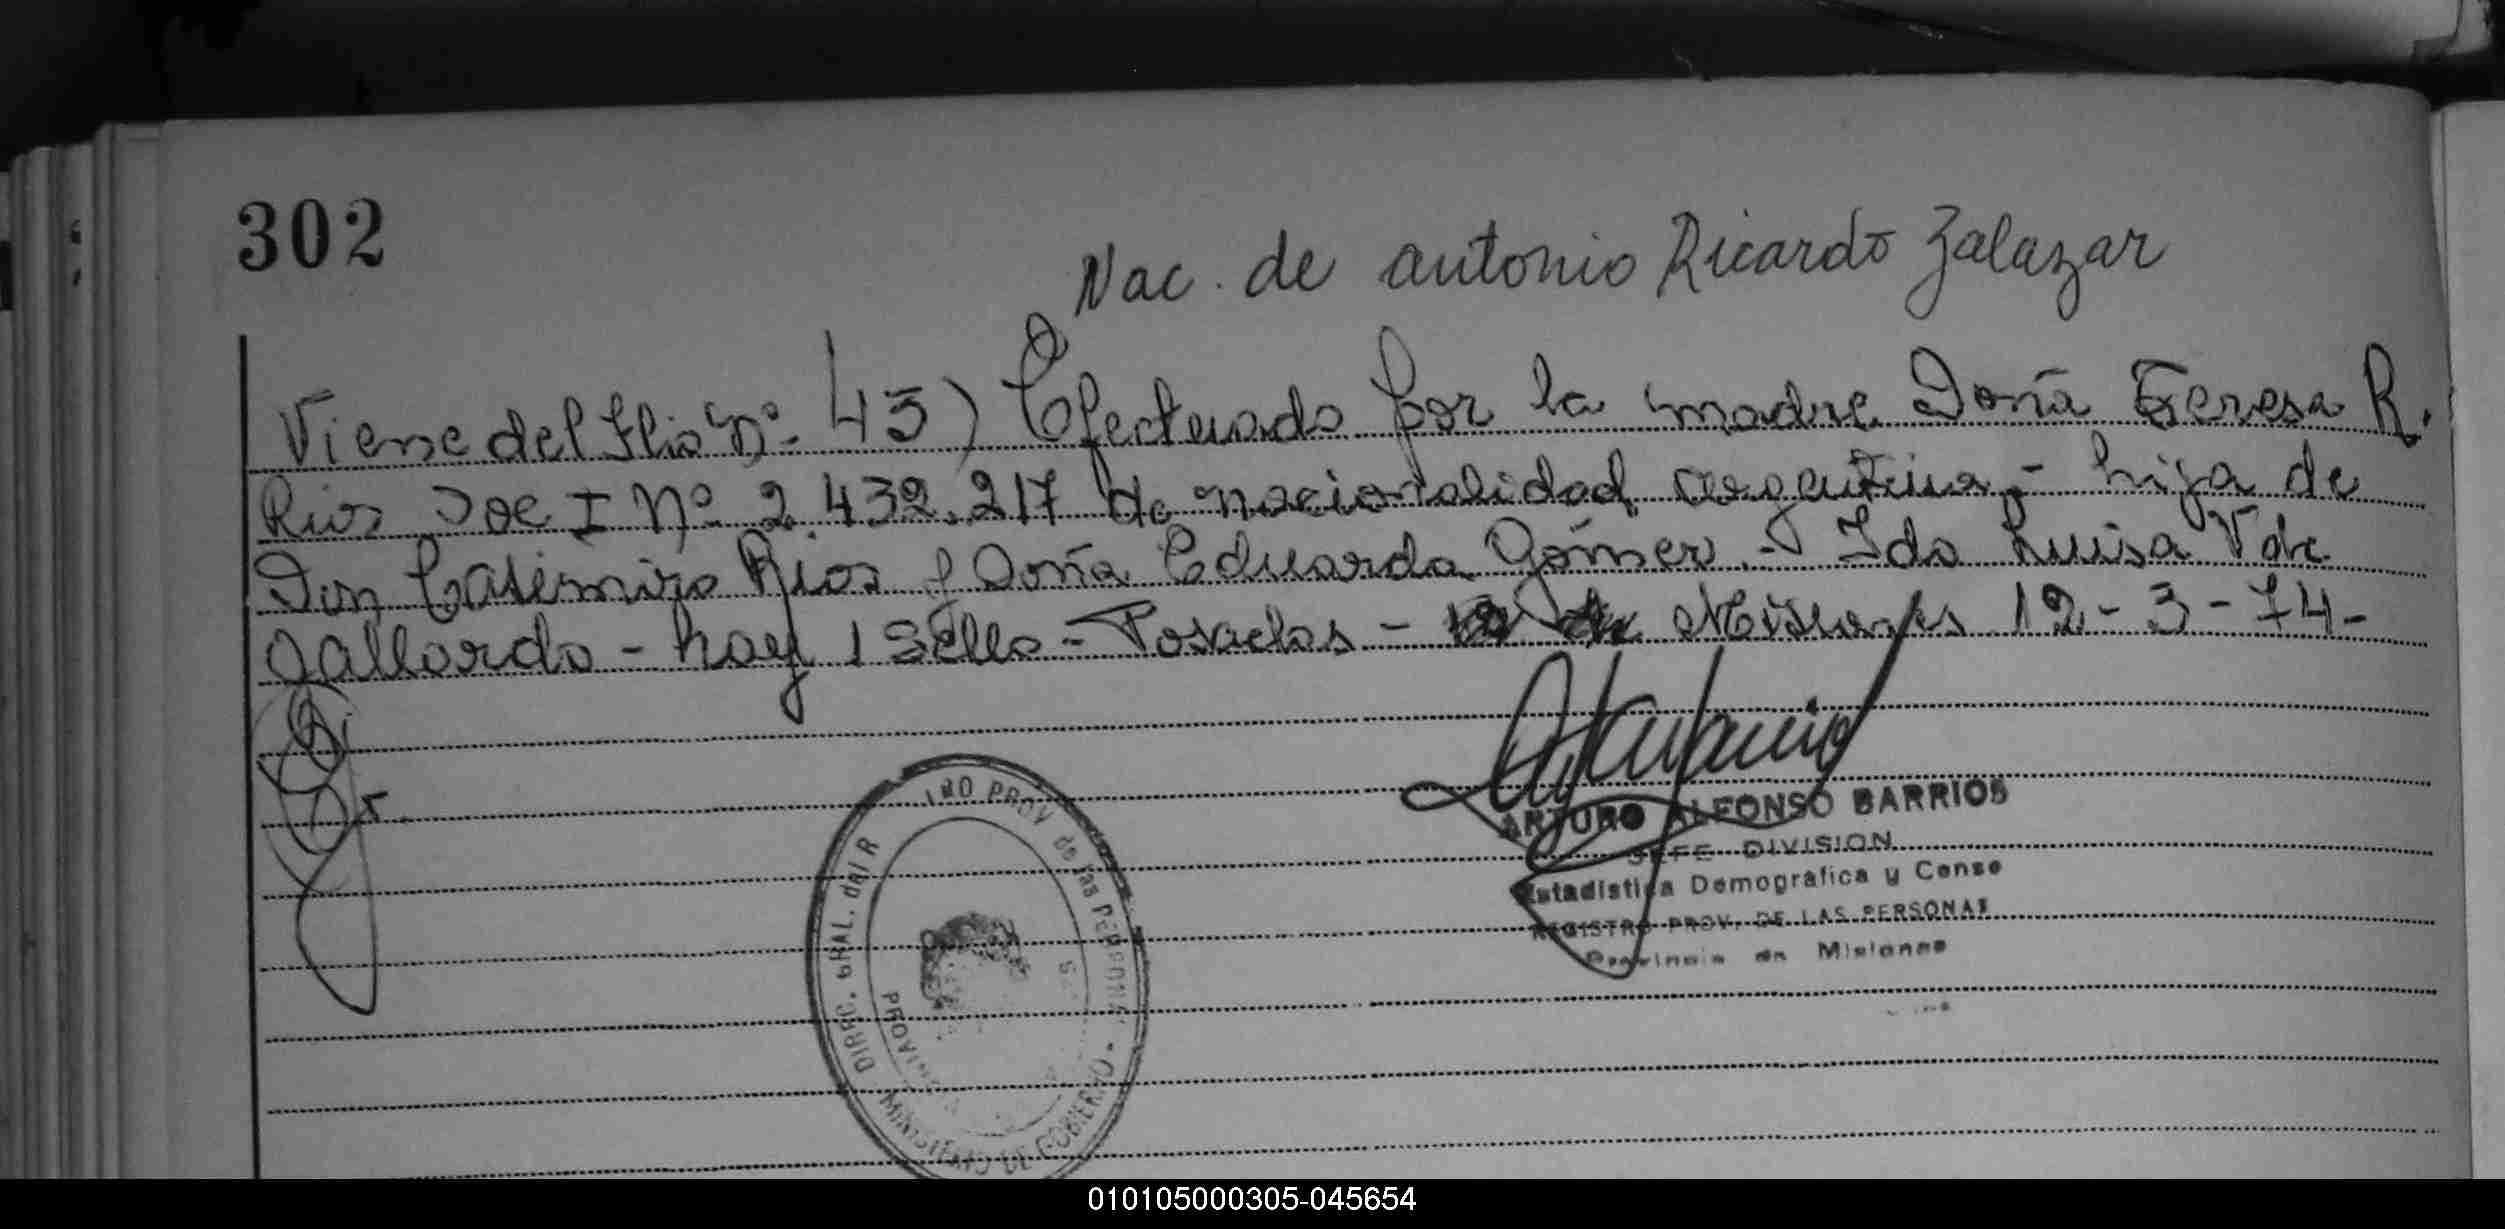 302
Nac. de antonio Ricardo Zalazar
Viene del flio Nº 43) Efectuado por la madre Doña Teresa R.
Rios Doc I Nº 2.432.217 de nacionalidad argentina - hija de
Don Casimiro Rios y Doña Eduarda Gómez. - Ida Luisa V de
Gallardo - hay 1 Sello - Posadas - Misiones 12-3-74-
ARTURO ALFONSO BARRIOS
JEFE DIVISION
Estadistica Demográfica y Censo
REGISTRO PROV. DE LAS PERSONAS
Provincia de Misiones
DIREC. GRAL. del R PROV de las PERSONAS
MINISTERIO DE GOBIERNO
010105000305-045654